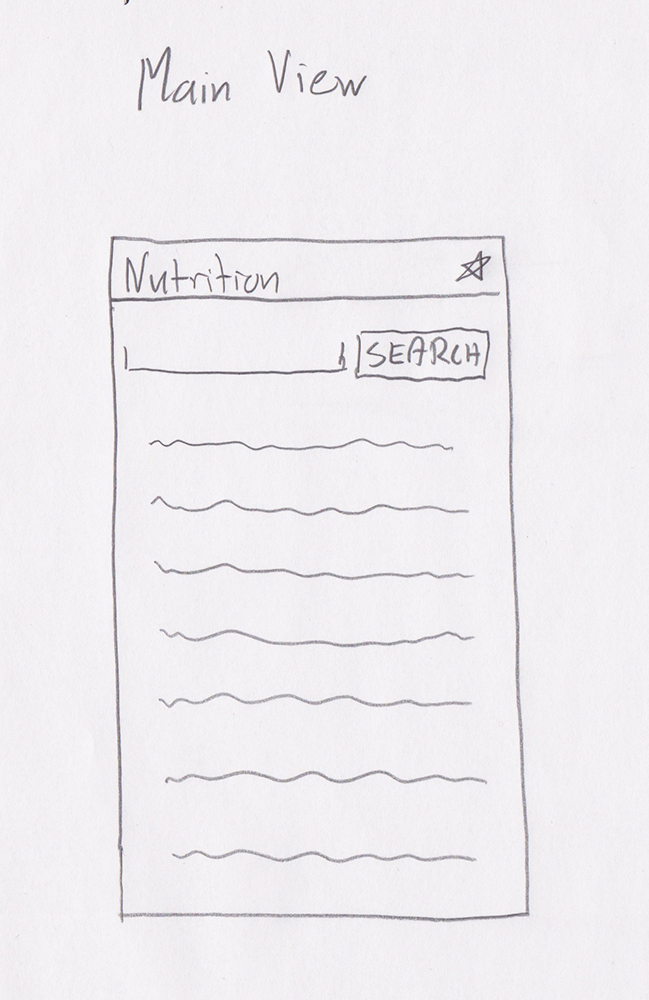 Main View
Nutrition
SEARCH